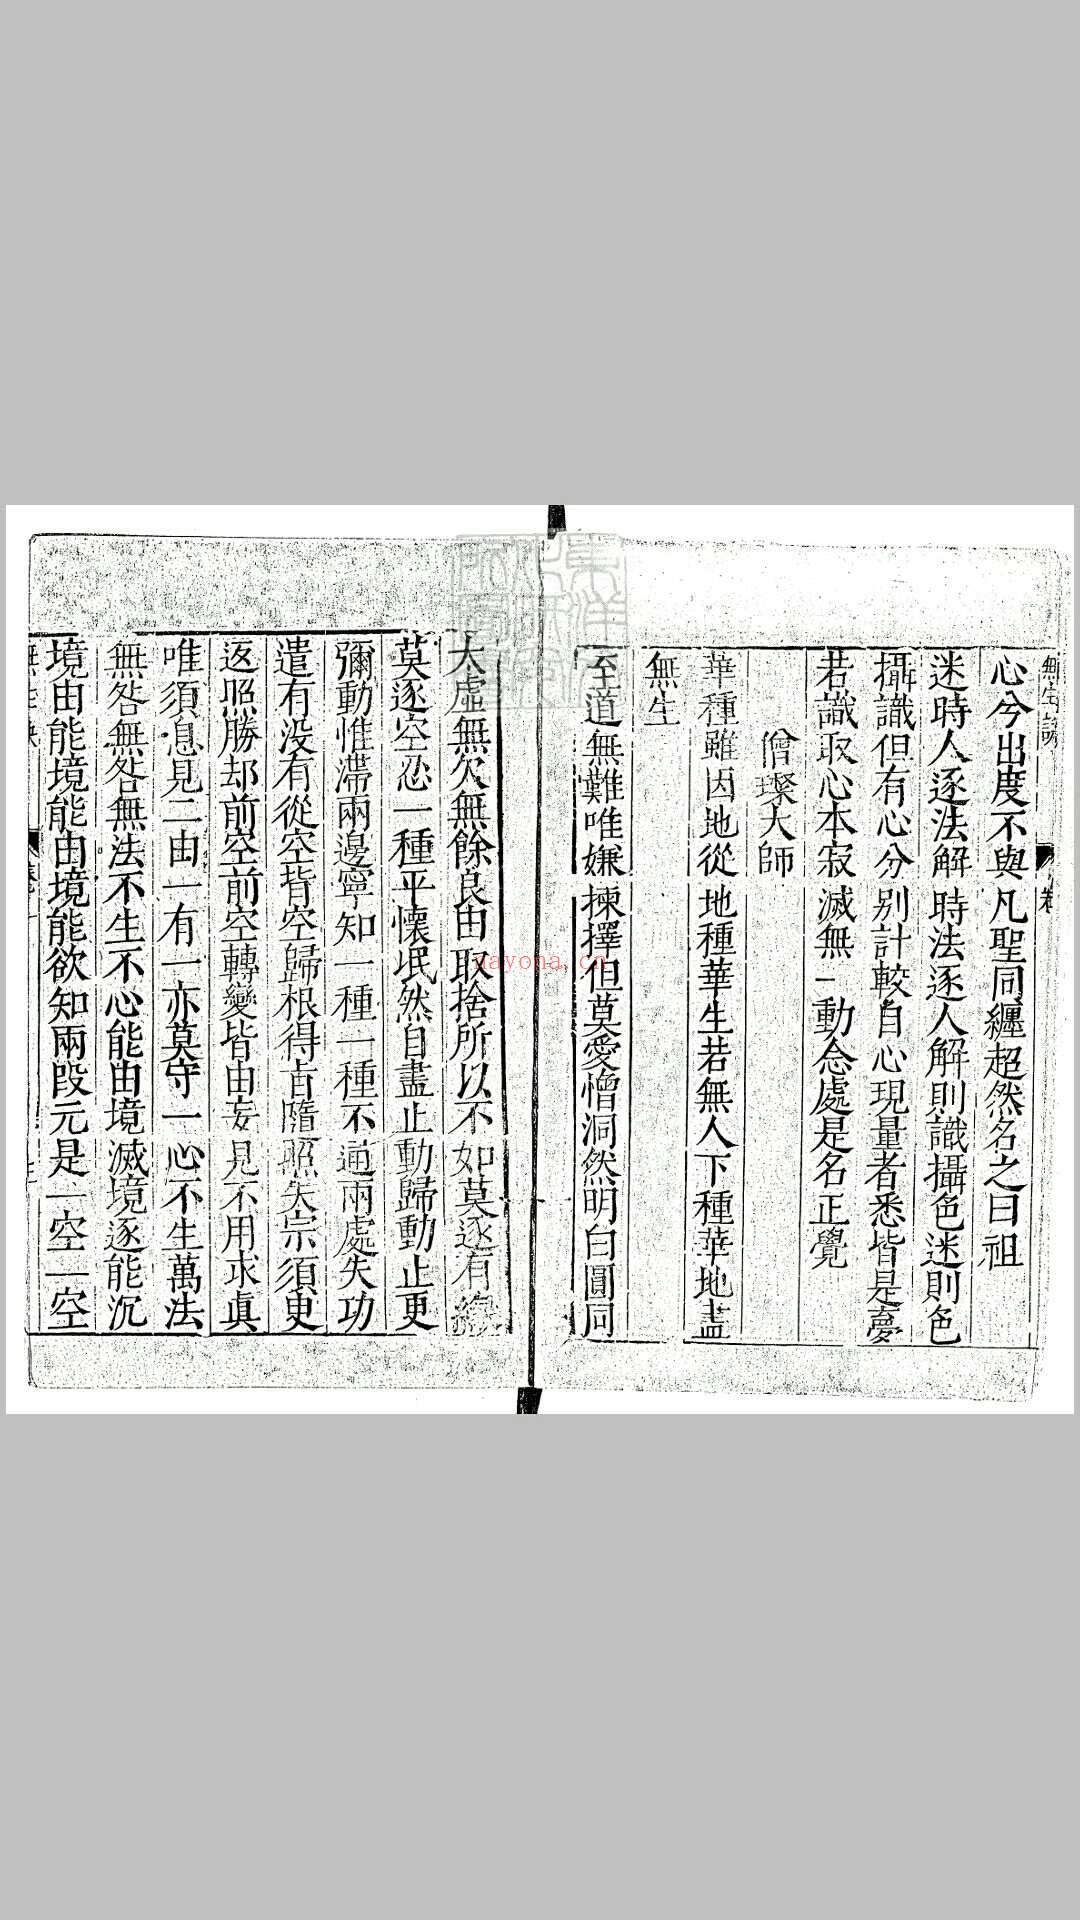 心兮出度不與凡聖同纏超然名之曰祖
迷時人逐法解時法逐人解則識攝色迷則色
攝識但有心分別計較自心現量者悉皆是夢
若識取心本寂滅無一動念處是名正覺
僧璨大師
華種雖因地從地種華生若無人下種華地盡
無生
至道無難唯嫌揀擇但莫愛憎洞然明白圓同
大虛無欠無餘良由取捨所以不如莫逐有緣
莫逐空忍一種平懷泯然自盡止動歸動止更
彌動惟滯兩邊寧知一種一種不通兩處失功
遣有没有從空背空歸根得旨隨照失宗須臾
返照勝却前空前空轉變皆由妄見不用求眞
唯須息見二由一有一亦莫守一心不生萬法
無咎無咎無法不生不心能由境滅境逐能沉
境由能境能由境能欲知兩段元是一空一空
nayona.cn